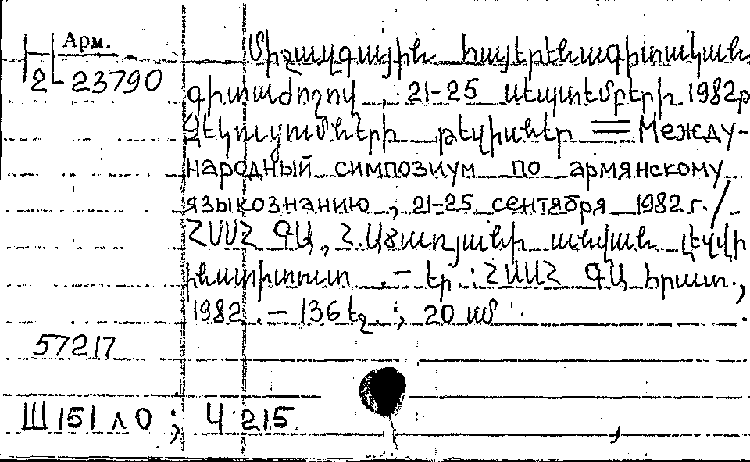 Арм.
2-23790
Միջազգային հայերենագիտական
գիտաժողով, 21-25 սեպտեմբերի 1982թ
Զեկուցումների թեզիսներ = Между-
народный симпозиум по армянскому
языкознанию, 21-25 сентября 1982 г. /
ՀՍՍՀ ԳԱ, Հ. Աճառյանի անվան լեզվի
ինստիտուտ. - Եր.: ՀՍՍՀ ԳԱ հրատ.,
1982. - 136 էջ.; 20 սմ.
57217
Ш151л0; Ч215